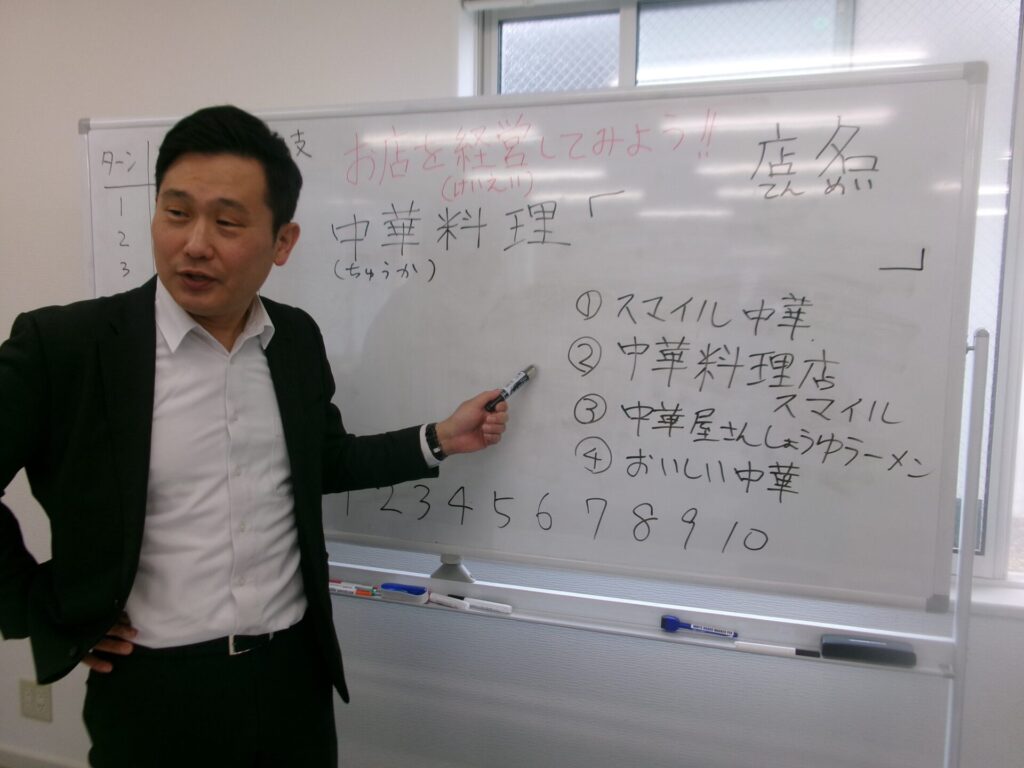 ターン
支
お店を経営してみよう!!
(けいえい)
店名
てんめい
1
2
3
中華料理「
(ちゅうか)
」
① スマイル中華
② 中華料理店
スマイル
③ 中華屋さんしょうゆラーメン
④ おいしい中華
1 2 3 4 5 6 7 8 9 10